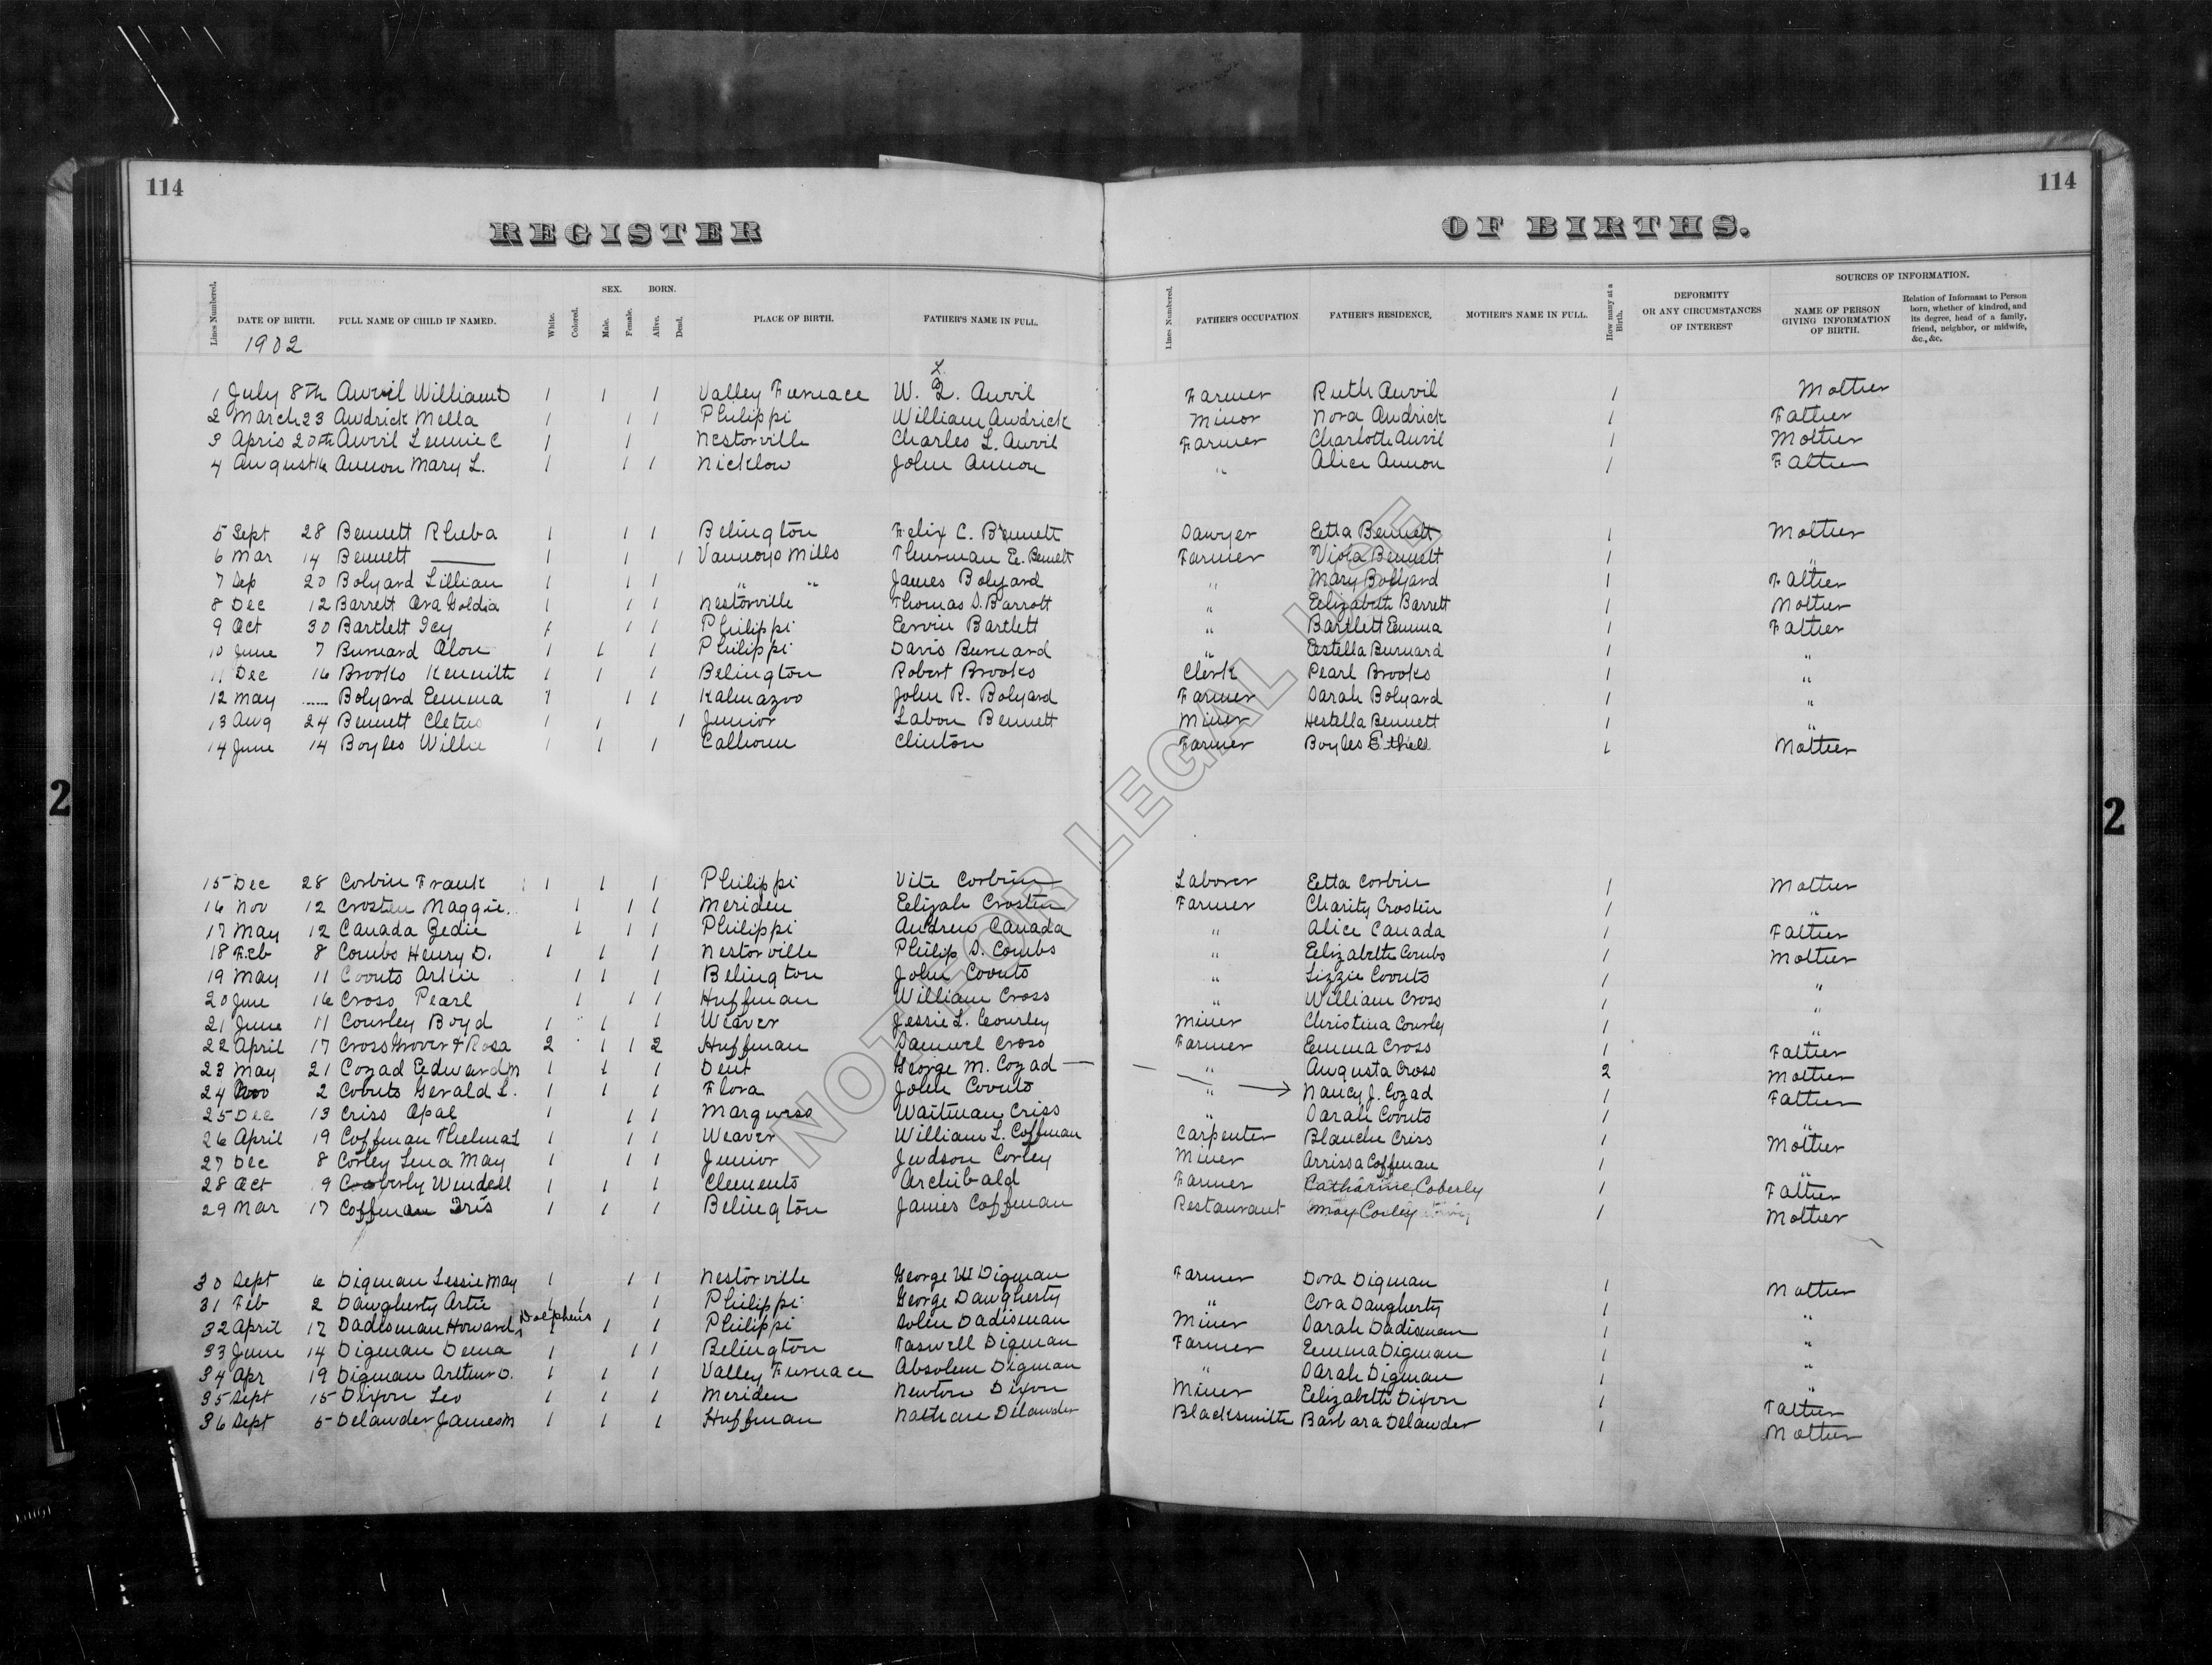 114
114
REGISTER
OF BIRTHS.
Lines Numbered.
DATE OF BIRTH.
FULL NAME OF CHILD IF NAMED.
White.
Colored.
SEX.
Male.
Female.
BORN.
Alive.
Dead.
PLACE OF BIRTH.
FATHER'S NAME IN FULL.
Lines Numbered.
FATHER'S OCCUPATION
FATHER'S RESIDENCE,
MOTHER'S NAME IN FULL.
How many at a Birth.
DEFORMITY OR ANY CIRCUMSTANCES OF INTEREST
SOURCES OF INFORMATION.
NAME OF PERSON GIVING INFORMATION OF BIRTH.
Relation of Informant to Person born, whether of kindred, and its degree, head of a family, friend, neighbor, or midwife, &c., &c.
1902
1 July 8th Auvil William D 1 1 1 Valley Furnace W. L. Auvil Farmer Ruth Auvil 1 Mother
2 March 23 Awdrick Mella 1 1 1 Philippi William Awdrick Minor Nora Awdrick 1 Father
3 April 20th Auvil Lennie C 1 1 Nestorville Charles L. Auvil Farmer Charlotte Auvil 1 Mother
4 August 16 Annon Mary L. 1 1 1 Nicklow John Annon " Alice Annon 1 Father
5 Sept 28 Bennett Rheba 1 1 1 Belington Felix C. Bennett Sawyer Etta Bennett 1 Mother
6 Mar 14 Bennett —— 1 1 1 Vannoys Mills Thurman E. Bennett Farmer Viola Bennett 1 "
7 Sep 20 Bolyard Lillian 1 1 1 " " James Bolyard " Mary Bolyard 1 Father
8 Dec 12 Barrett Ora Goldia 1 1 1 Nestorville Thomas D. Barrott " Elizabeth Barrett 1 Mother
9 Oct 30 Bartlett Icy 1 1 1 Philippi Ervin Bartlett " Bartlett Emma 1 Father
10 June 7 Burnard Alon 1 1 1 Philippi Davis Burnard " Estella Burnard 1 "
11 Dec 16 Brooks Kennith 1 1 1 Belington Robert Brooks Clerk Pearl Brooks 1 "
12 May —— Bolyard Emma 1 1 1 Kalmazoo John R. Bolyard Farmer Sarah Bolyard 1 "
13 Aug 24 Bennett Cletus 1 1 1 Junior Labon Bennett Miner Hestella Bennett 1 "
14 June 14 Boyles Willie 1 1 1 Calhoun Clinton Farmer Boyles Ethel 1 Mother
15 Dec 28 Corbin Frank 1 1 1 Philippi Vite Corbin Laborer Etta Corbin 1 Mother
16 Nov 12 Crosten Maggie. 1 1 1 Meriden Elijah Crostin Farmer Charity Crostin 1 "
17 May 12 Canada Zedie 1 1 1 Philippi Andrew Canada " Alice Canada 1 Father
18 Feb 8 Combs Henry D. 1 1 1 Nestorville Philip D. Combs " Elizabeth Combs 1 Mother
19 May 11 Coonts Artie 1 1 1 Belington John Coonts " Lizzie Coonts 1 "
20 June 16 Cross Pearl 1 1 1 Huffman William Cross " William Cross 1 "
21 June 11 Courley Boyd 1 1 1 Weaver Jessie L. Courley Miner Christina Courley 1 "
22 April 17 Cross Grover & Rosa 2 1 1 2 Huffman Samuel Cross Farmer Emma Cross 1 Father
23 May 21 Cozad Edward M 1 1 1 Dent George M. Cozad — " Augusta Cross 2 Mother
24 Nov 2 Coonts Gerald L. 1 1 1 Flora John Coonts " Nancy J. Cozad 1 Father
25 Dec 13 Criss Opal 1 1 1 Marquess Waitman Criss " Sarah Coonts 1 "
26 April 19 Coffman Thelma L 1 1 1 Weaver William L. Coffman Carpenter Blanche Criss 1 Mother
27 Dec 8 Corley Lena May 1 1 1 Junior Judson Corley Miner Arrissa Coffman 1 "
28 Oct 9 Coberly Wendell 1 1 1 Clements Archibald Farmer Catharine Coberly 1 Father
29 Mar 17 Coffman Dris 1 1 1 Belington James Coffman Restaurant May Corley 1 Mother
30 Sept 6 Digman Lessie May 1 1 1 Nestorville George W Digman Farmer Dora Digman 1 Mother
31 Feb 2 Daugherty Artie 1 1 1 Philippi George Daugherty " Cora Daugherty 1 "
32 April 17 Dadisman Howard Dolpheus 1 1 1 Philippi Solen Dadisman Miner Sarah Dadisman 1 "
33 June 14 Digman Dema 1 1 1 Belington Taswell Digman Farmer Emma Digman 1 "
34 Apr 19 Digman Arthur D. 1 1 1 Valley Furnace Absolem Digman " Sarah Digman 1 "
35 Sept 15 Dixon Leo 1 1 1 Meriden Newton Dixon Miner Elizabeth Dixon 1 Father
36 Sept 5 Delawder James M 1 1 1 Huffman Nathan Delawder Blacksmith Barbara Delawder 1 Mother
2
2
NOT FOR LEGAL USE